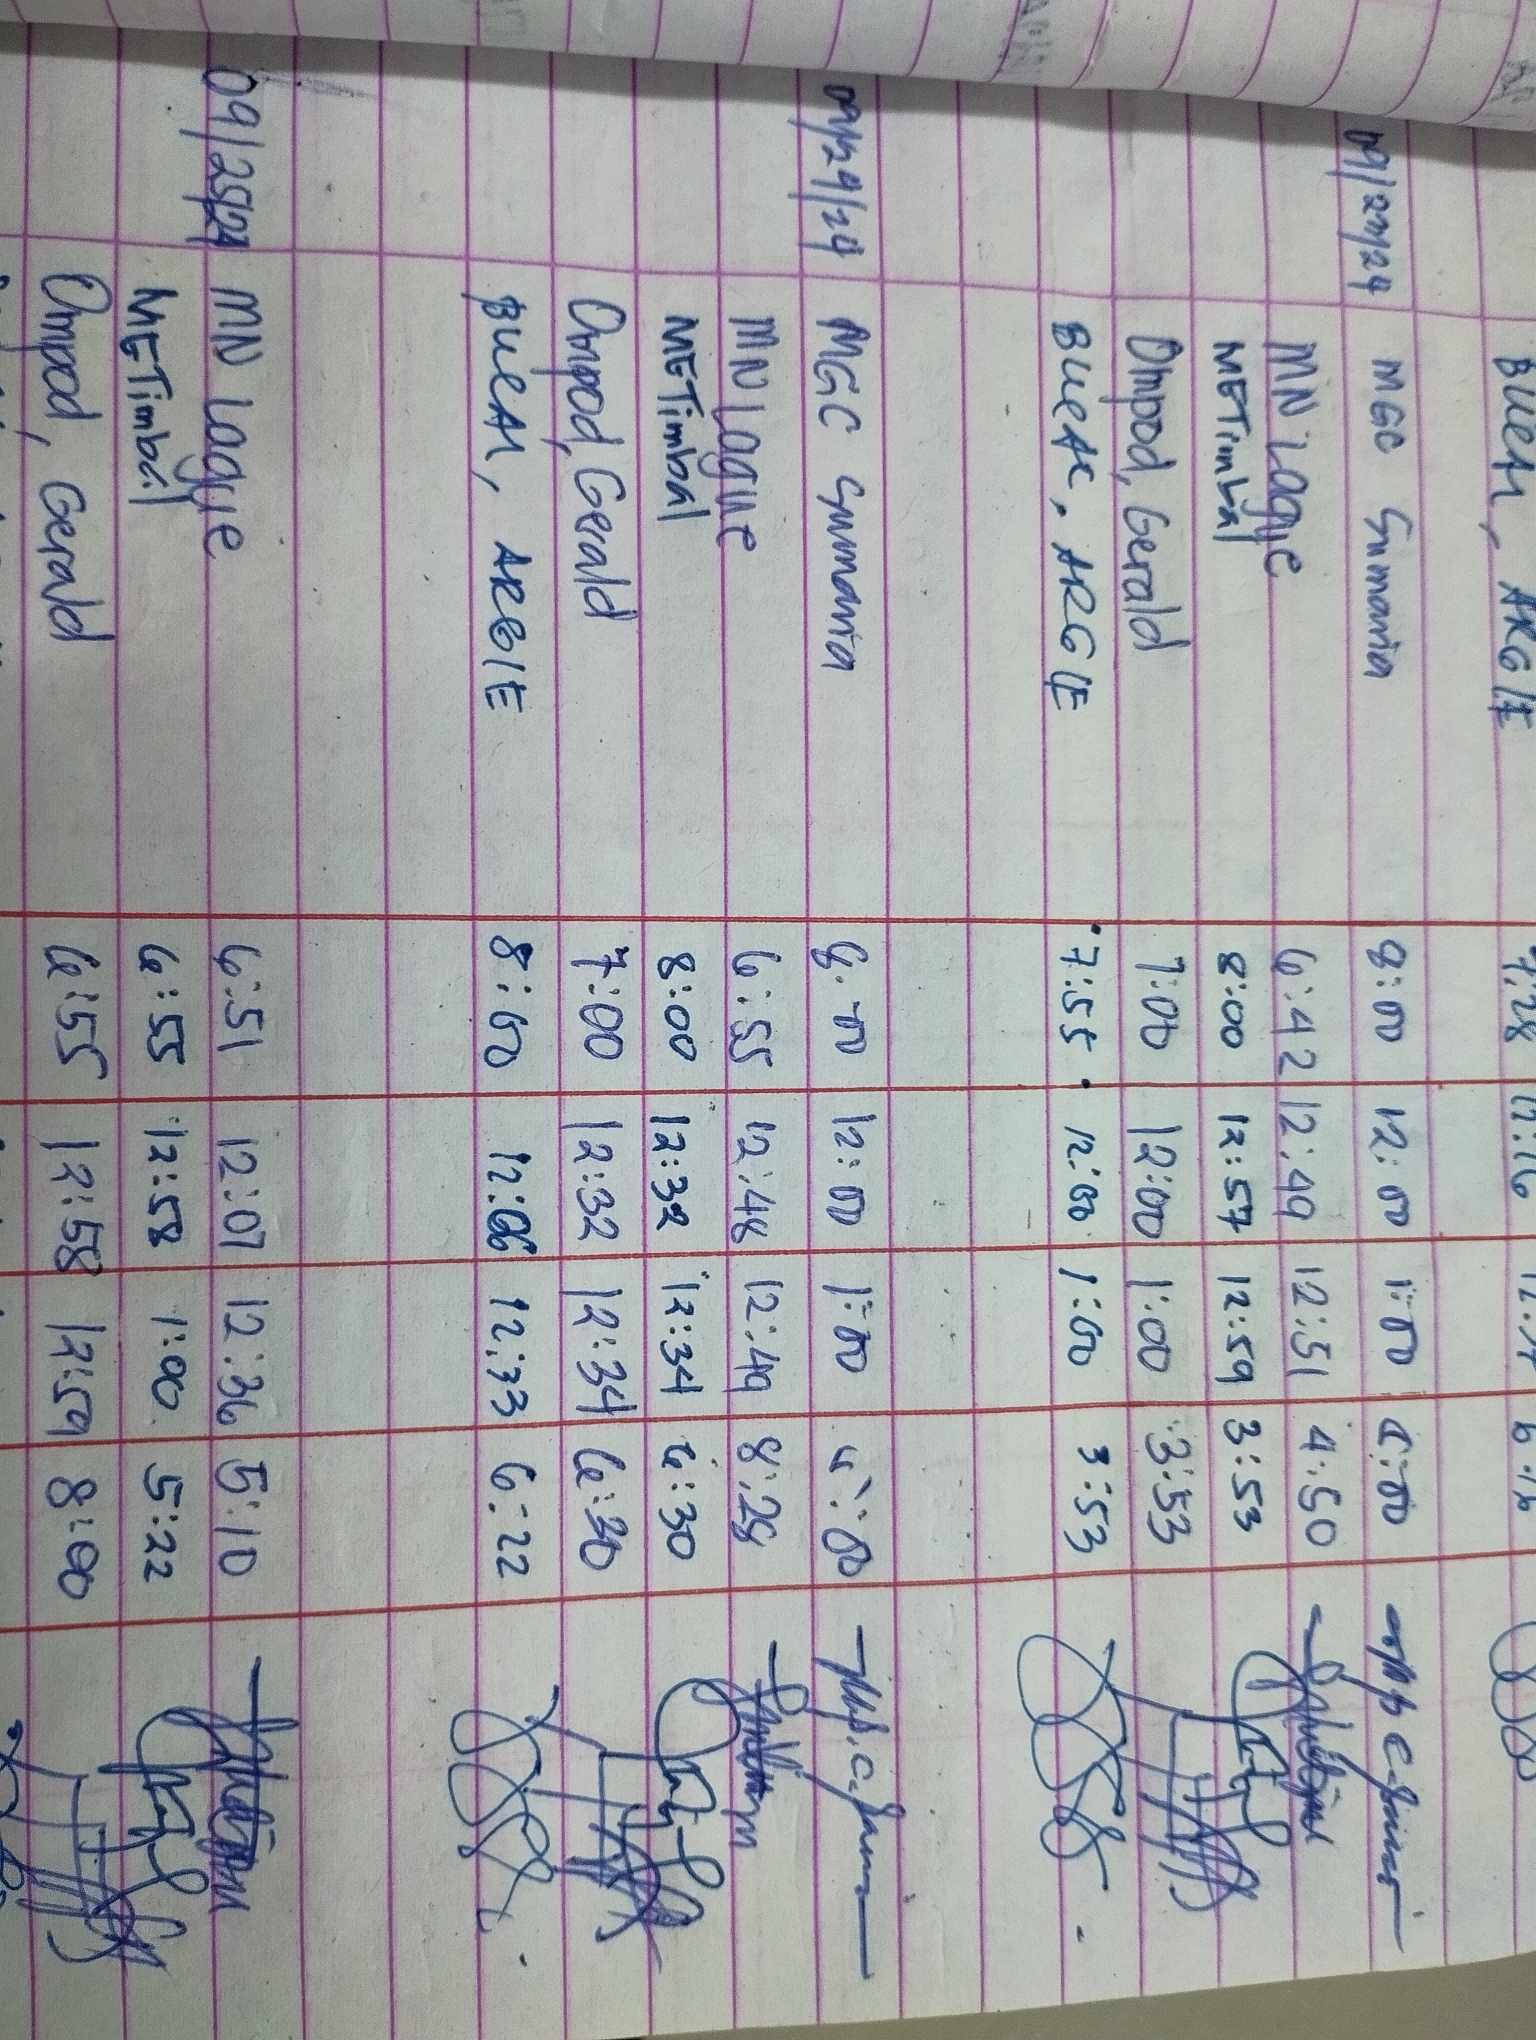 BUCAL, ARGIE 7:28
09/23/24 MGC Summaria 8:00 12:00 1:00 5:00
MN Lague 6:42 12:49 12:51 4:50
METimbal 8:00 12:57 12:59 3:53
Ompod, Gerald 7:00 12:00 1:00 3:53
BUCAL, ARGIE 7:55 12:00 1:00 3:53
09/24/24 MGC Summaria 8:00 12:00 1:00 5:00
MN Lague 6:55 12:48 12:49 8:28
METimbal 8:00 12:32 12:34 6:30
Ompod, Gerald 7:00 12:32 12:34 6:30
BUCAL, ARGIE 8:00 12:06 12:33 6:22
09/25/24 MN Lague 6:51 12:07 12:36 5:10
METimbal 6:55 12:58 1:00 5:22
Ompod, Gerald 6:55 12:58 12:59 8:00